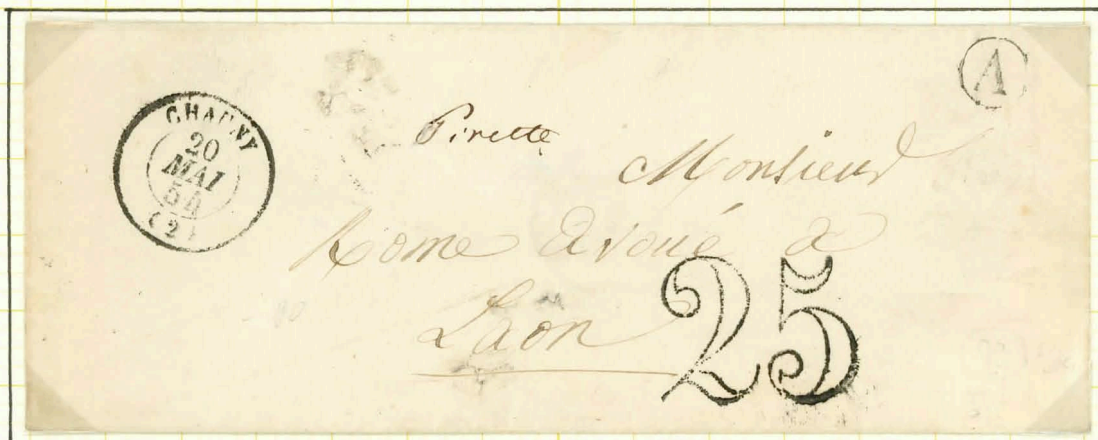 A
CHAUNY
20
MAI
54
(2)
Pirette
Monsieur
Rome avoué à
Laon
25